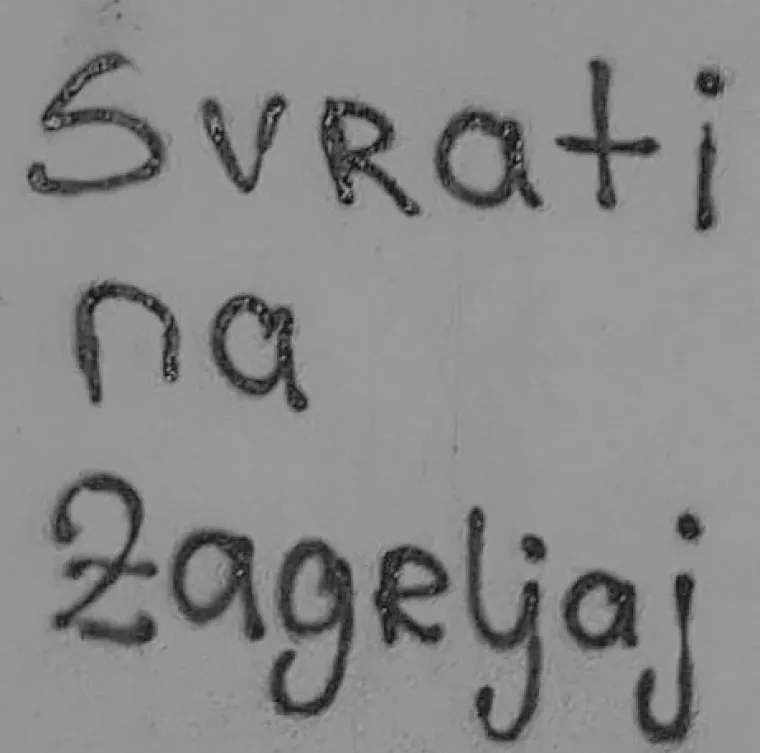 Svrati
na
zagrljaj